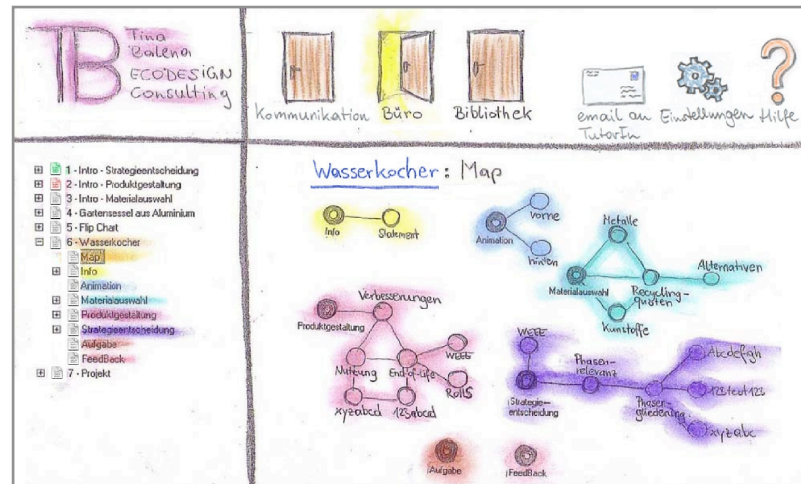 TB
Tina
Balena
ECODESIGN
Consulting
Kommunikation
Büro
Bibliothek
email an
TutorIn
Einstellungen
Hilfe
1 - Intro - Strategieentscheidung
2 - Intro - Produktgestaltung
3 - Intro - Materialauswahl
4 - Gartensessel aus Aluminium
5 - Flip Chart
6 - Wasserkocher
Map
Info
Animation
Materialauswahl
Produktgestaltung
Strategieentscheidung
Aufgabe
FeedBack
7 - Projekt
Wasserkocher: Map
Info
Statement
Animation
vorne
hinten
Metalle
Materialauswahl
Recycling-
quoten
Alternativen
Kunstoffe
Verbesserungen
Produktgestaltung
Nutzung
End-of-Life
WEEE
RollS
xyzabcd
123abcd
WEEE
Phasen-
relevanz
Strategie-
entscheidung
Phasen-
gliederung
Abcdefgh
123test123
xyzabc
Aufgabe
FeedBack